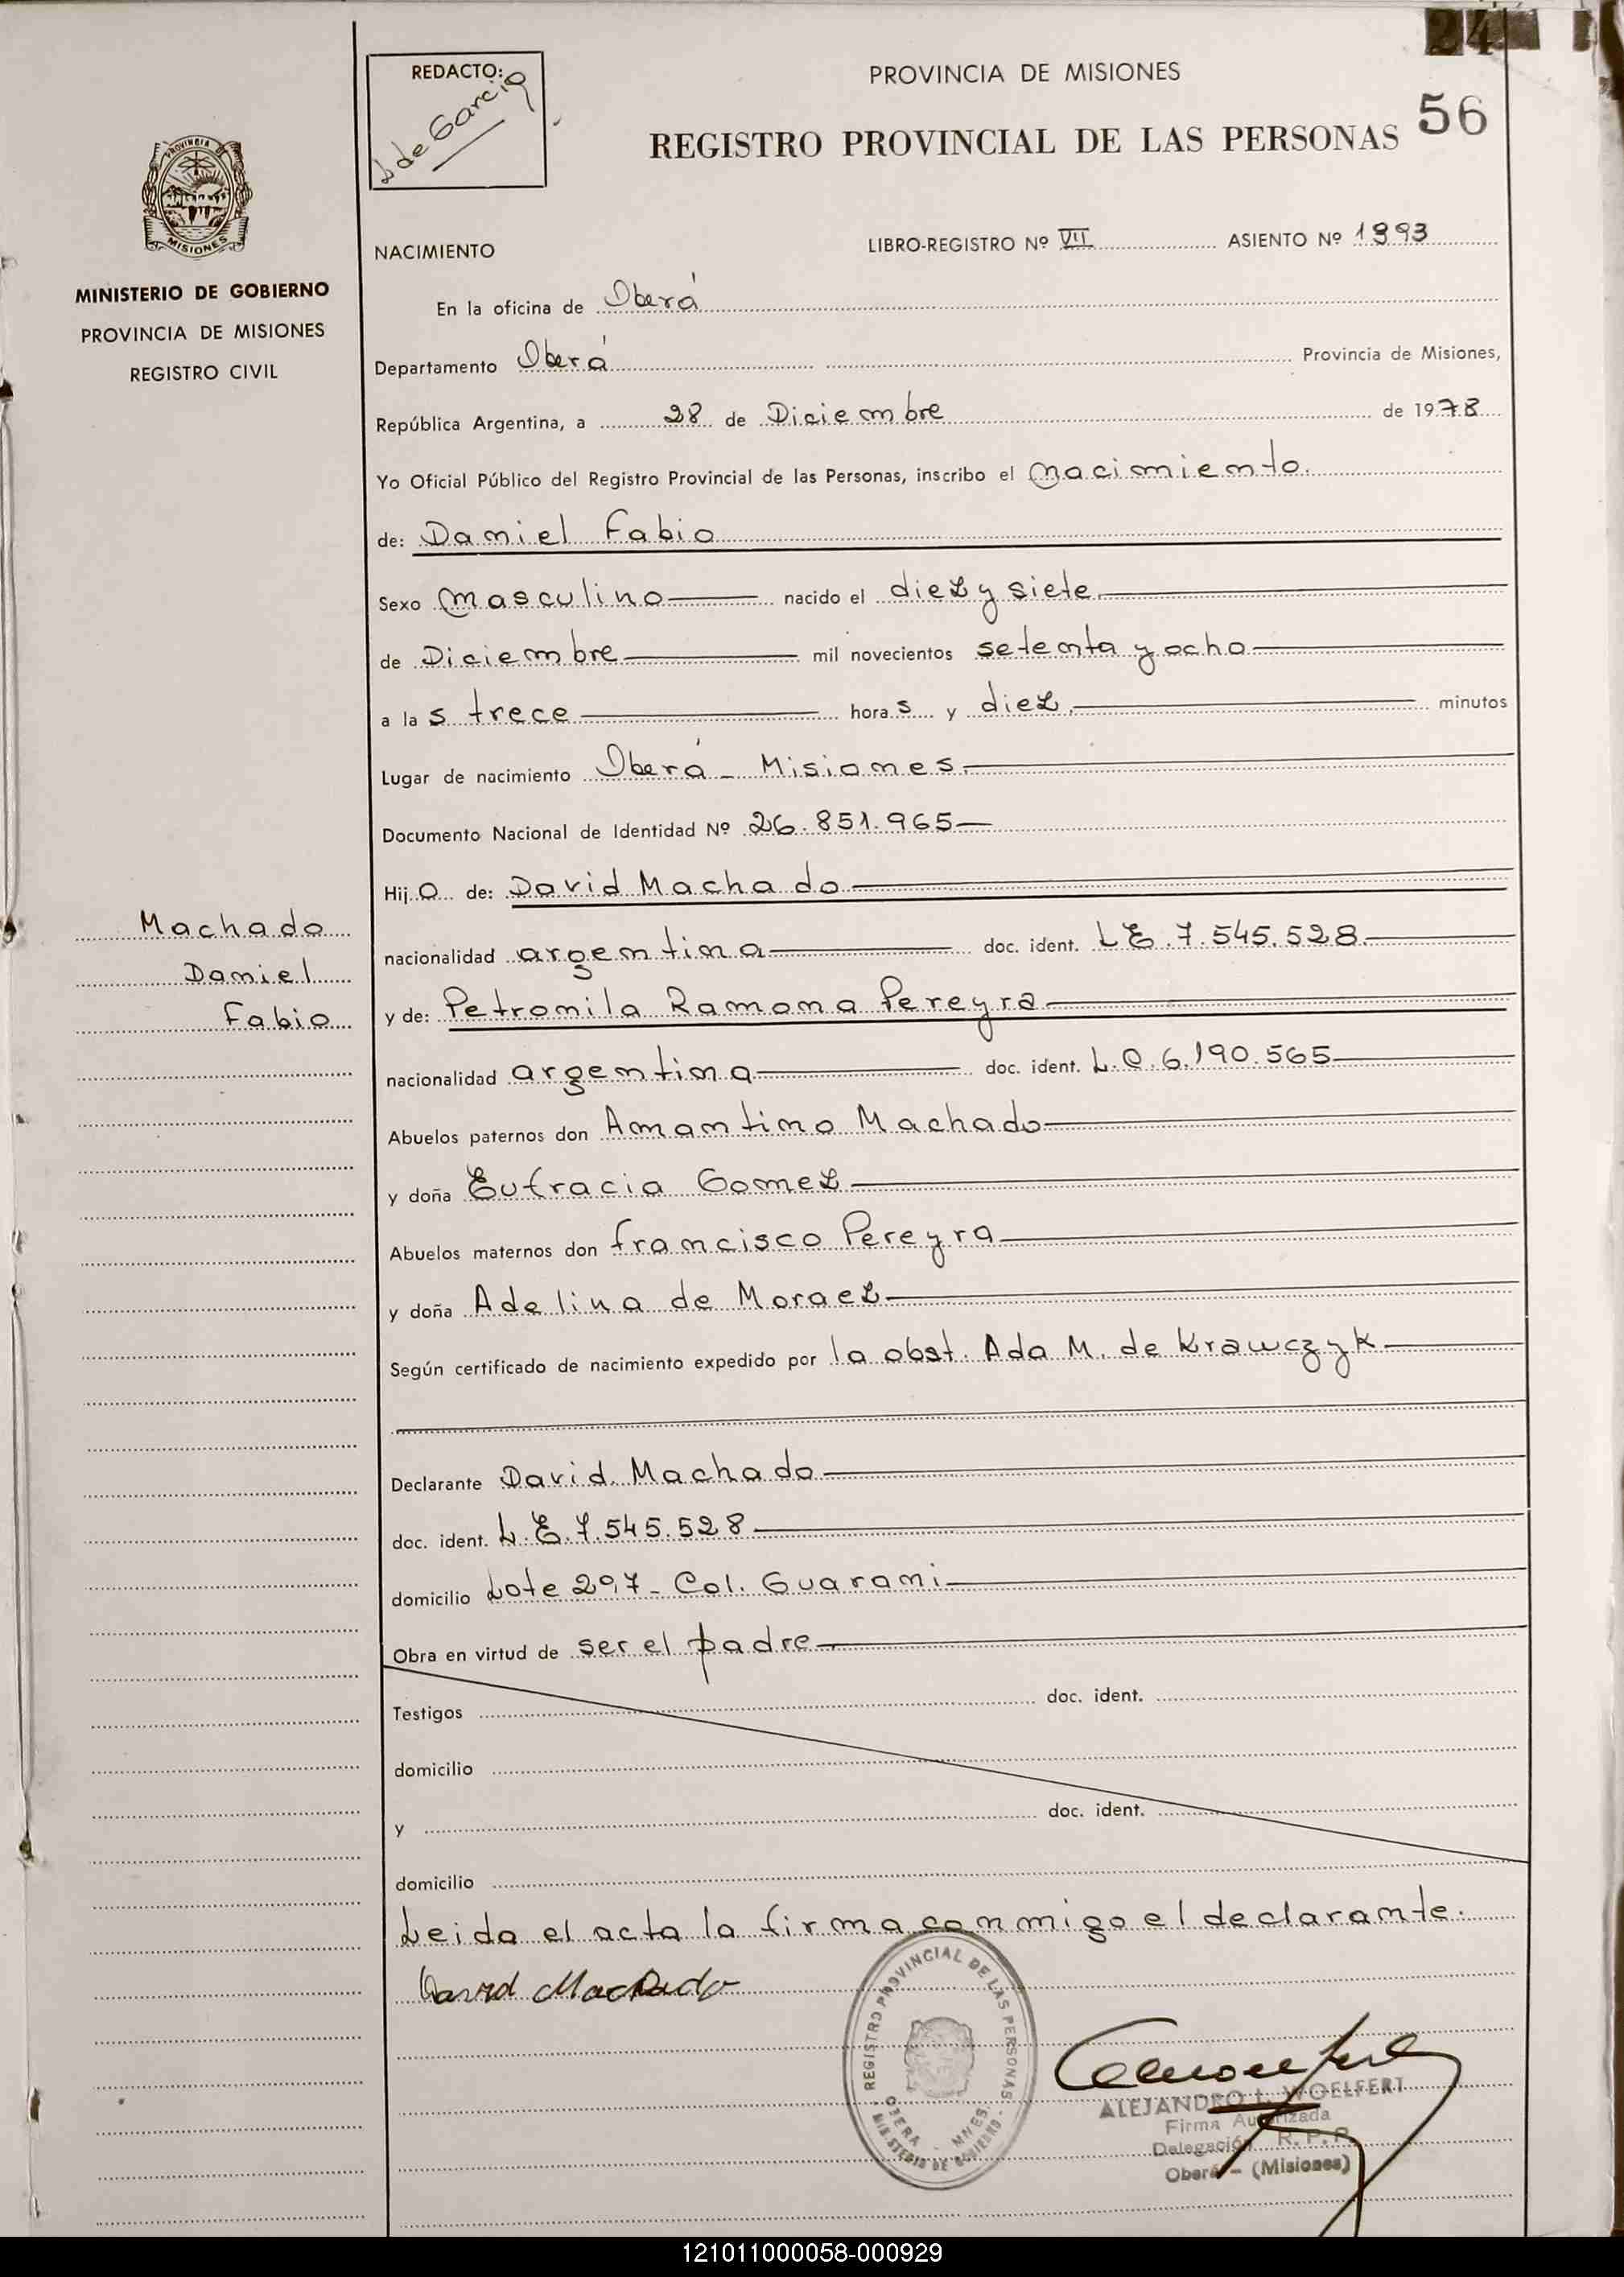 24
REDACTO:
L de Garcia
PROVINCIA DE MISIONES
REGISTRO PROVINCIAL DE LAS PERSONAS 56
PROVINCIA DE
MISIONES
MINISTERIO DE GOBIERNO
PROVINCIA DE MISIONES
REGISTRO CIVIL
NACIMIENTO
LIBRO-REGISTRO Nº VII ASIENTO Nº 1993
En la oficina de Oberá
Departamento Oberá Provincia de Misiones,
República Argentina, a 28 de Diciembre de 1978
Yo Oficial Público del Registro Provincial de las Personas, inscribo el nacimiento
de: Daniel Fabio
Sexo masculino nacido el diez y siete
de Diciembre mil novecientos setenta y ocho
a las trece horas y diez minutos
Lugar de nacimiento Oberá - Misiones
Documento Nacional de Identidad Nº 26.851.965
Hijo de: David Machado
Machado
Daniel
Fabio
nacionalidad argentina doc. ident. L E. 7.545.528.
y de: Petronila Ramona Pereyra
nacionalidad argentina doc. ident. L.C 6.190.565
Abuelos paternos don Amantino Machado
y doña Eufracia Gomez
Abuelos maternos don Francisco Pereyra
y doña Adelina de Moraez
Según certificado de nacimiento expedido por la obst. Ada M. de Krawczyk
Declarante David Machado
doc. ident. L.E.7.545.528
domicilio Lote 297 - Col. Guarani
Obra en virtud de ser el padre
Testigos doc. ident.
domicilio
y doc. ident.
domicilio
Leida el acta la firma conmigo el declarante.
David Machado
REGISTRO PROVINCIAL DE LAS PERSONAS
OBERA - MNES.
MINISTERIO DE GOBIERNO
ALEJANDRO L. WOELFERT
Firma Autorizada
Delegación R.P.P.
Oberá - (Misiones)
121011000058-000929